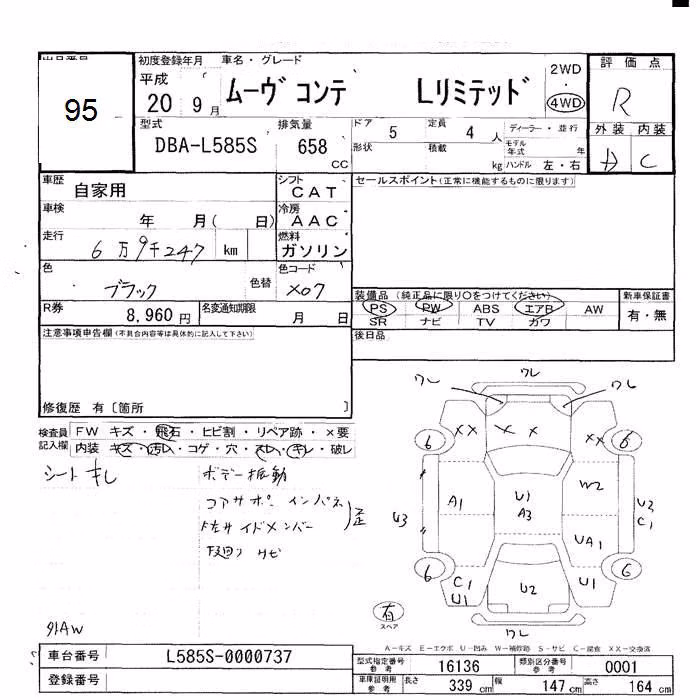 出品番号
95
初度登録年月 車名・グレード
平成
20 9月
ムーヴ コンテ Lリミテッド
2WD
・
4WD
評価点
R
型式
DBA-L585S
排気量
658 cc
ドア 5 定員 4 人
形状 積載 kg
ディーラー・並行
モデル年式 年
ハンドル 左・右
外装 内装
C
車歴 自家用
シフト CAT
セールスポイント(正常に機能するものに限ります)
車検 年 月( 日)
冷房 AAC
走行 6万9千247 km
燃料 ガソリン
色 ブラック 色替
色コード X07
装備品 (純正品に限り○をつけてください)
PS PW ABS エアB AW
SR ナビ TV カワ
新車保証書
有・無
R券 8,960 円
名変通知期限 月 日
後日品
注意事項申告欄(不具合内容等は具体的に記入して下さい)
修復歴 有〔箇所 〕
検査員記入欄
FW キズ・飛石・ヒビ割・リペア跡・×要
内装 キズ・汚レ・コゲ・穴・スレ・キレ・破レ
シートキレ
ボデー振動
コアサポ インパネ
左サイドメンバー
下廻り サビ
91AW
ワレ
ワレ ワレ
XX X X XX
6 6
A1 U1 W2
A3
U3 U2
C1
UA1
6 6
C1 U2 U1
U1
ワレ
有
スペア
A-キズ E-エクボ U-凹み W-補修跡 S-サビ C-腐食 XX-交換済
車台番号 L585S-0000737
登録番号
型式指定番号 参考 16136 類別区分番号 参考 0001
車庫証明用 参考 長さ 339 cm 幅 147 cm 高さ 164 cm